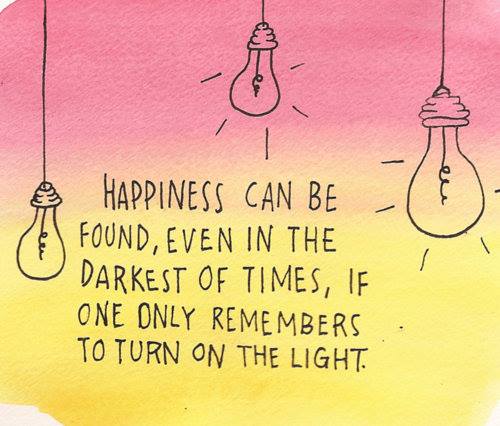 HAPPINESS CAN BE
FOUND, EVEN IN THE
DARKEST OF TIMES, IF
ONE ONLY REMEMBERS
TO TURN ON THE LIGHT.